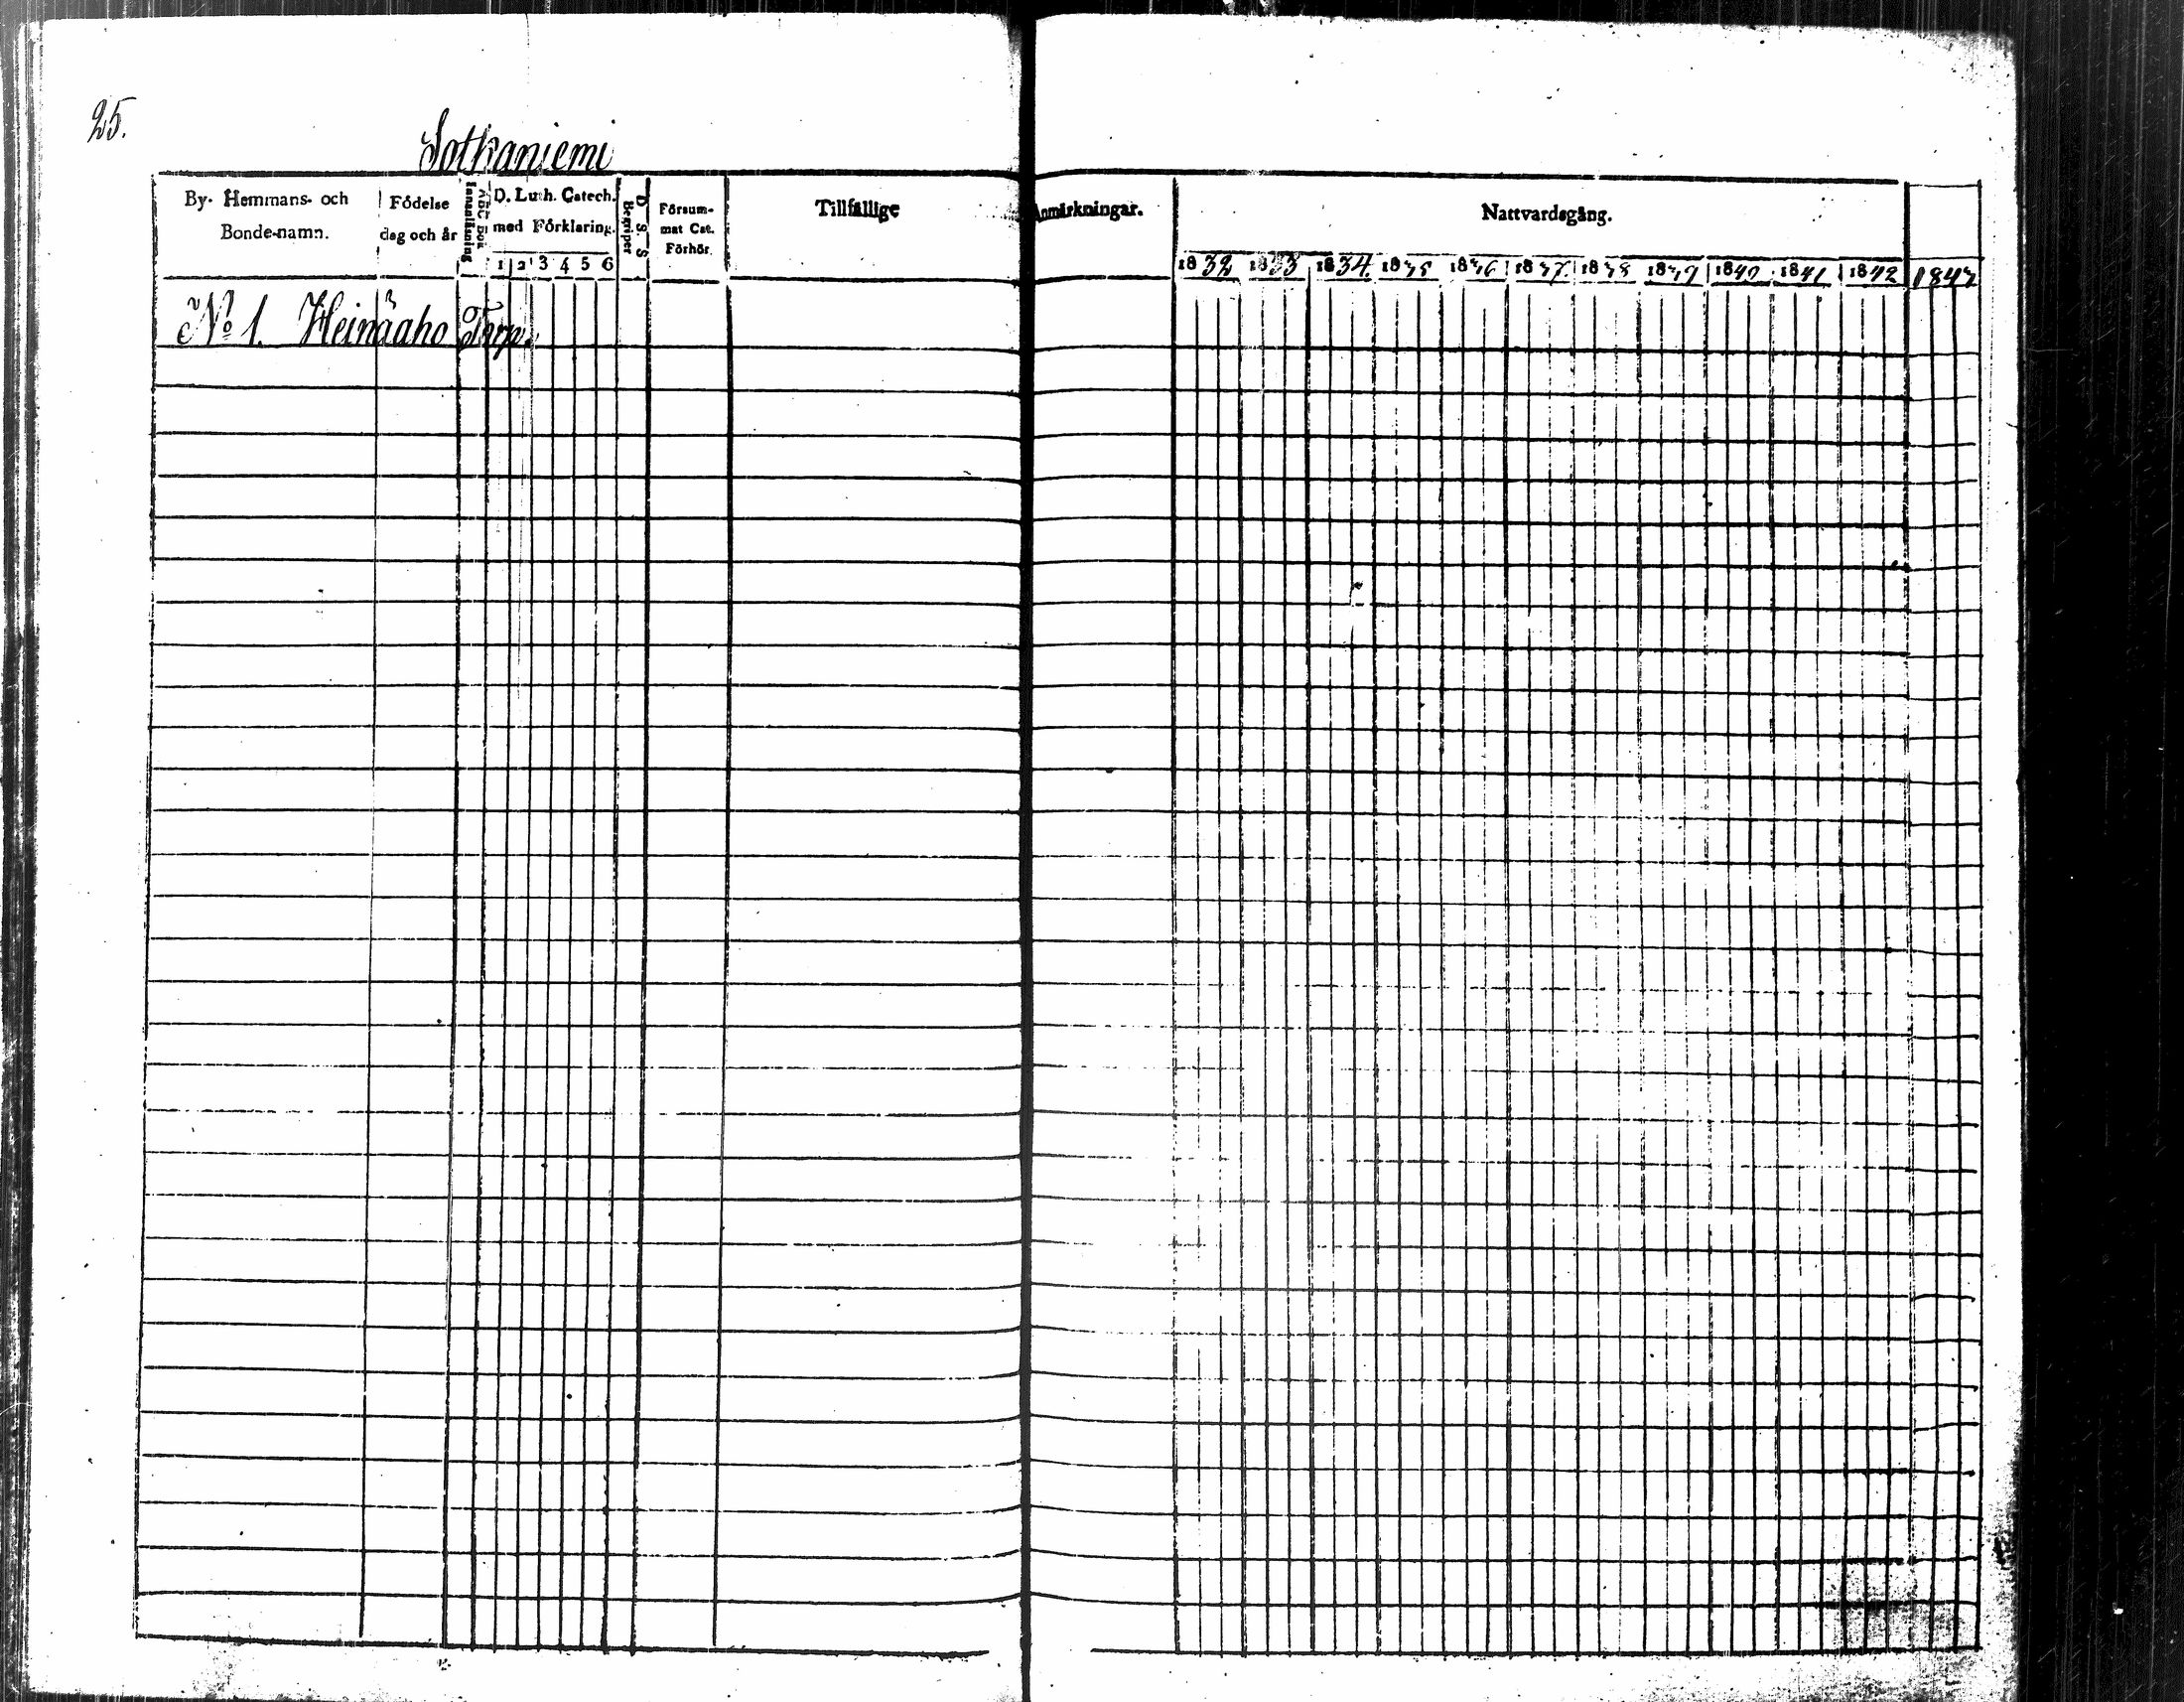 25.
Sotkaniemi
By- Hemmans- och
Bonde-namn.
Födelse
dag och år
Innanläsning
ABC Bok
D. Luth. Catech.
med Förklaring.
1 2 3 4 5 6
Begriper
D. S. S
Försum-
mat Cat.
Förhör
Tillfällige Anmärkningar.
Nattvardsgång.
1832 1833 1834. 1835 1836 1837. 1838 1839 1840 1841 1842 1843
No 1. Heinäaho Torp.